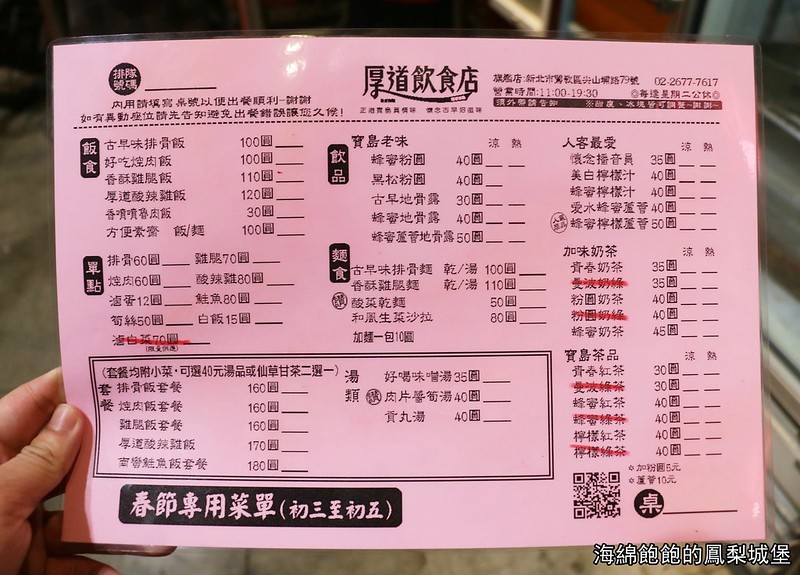 排隊號碼
厚道飲食店
正港寶島真情味 懷念古早好滋味
旗艦店:新北市鶯歌區尖山埔路79號 02-2677-7617
營業時間:11:00-19:30 ◎每逢星期二公休◎
須外帶請告知 ※甜度、冰塊皆可調整~謝謝~
內用請填寫桌號以便出餐順利~謝謝
如有異動座位請先告知避免出餐錯誤讓您久候!
飯食
古早味排骨飯 100圓
好吃焢肉飯 100圓
香酥雞腿飯 110圓
厚道酸辣雞飯 120圓
香噴噴魯肉飯 30圓
方便素齋 飯/麵 100圓
單點
排骨60圓 雞腿70圓
焢肉60圓 酸辣雞80圓
滷蛋12圓 鮭魚80圓
筍絲50圓 白飯15圓
滷白菜70圓
(限量供應)
飲品
寶島老味 涼 熱
蜂蜜粉圓 40圓
黑松粉圓 40圓
古早地骨露 30圓
蜂蜜地骨露 40圓
蜂蜜蘆薈地骨露50圓
麵食
古早味排骨麵 乾/湯 100圓
香酥雞腿麵 乾/湯 110圓
酸菜乾麵 50圓
和風生菜沙拉 80圓
加麵一包10圓
人客最愛 涼 熱
懷念播音員 35圓
美白檸檬汁 40圓
蜂蜜檸檬汁 40圓
愛水蜂蜜蘆薈 40圓
蜂蜜檸檬蘆薈50圓
加味奶茶 涼 熱
青春奶茶 35圓
曼波奶綠 35圓
粉圓奶茶 40圓
粉圓奶綠 40圓
蜂蜜奶茶 45圓
寶島茶品 涼 熱
青春紅茶 30圓
曼波綠茶 30圓
蜂蜜紅茶 40圓
蜂蜜綠茶 40圓
檸檬紅茶 40圓
檸檬綠茶 40圓
※加粉圓5元
※蘆薈10元
桌
(套餐均附小菜·可選40元湯品或仙草甘茶二選一)
套餐
排骨飯套餐 160圓
焢肉飯套餐 160圓
雞腿飯套餐 160圓
厚道酸辣雞飯 170圓
南巒鮭魚飯套餐 180圓
湯類
好喝味噌湯35圓
肉片醬筍湯40圓
貢丸湯 40圓
春節專用菜單(初三至初五)
海綿飽飽的鳳梨城堡